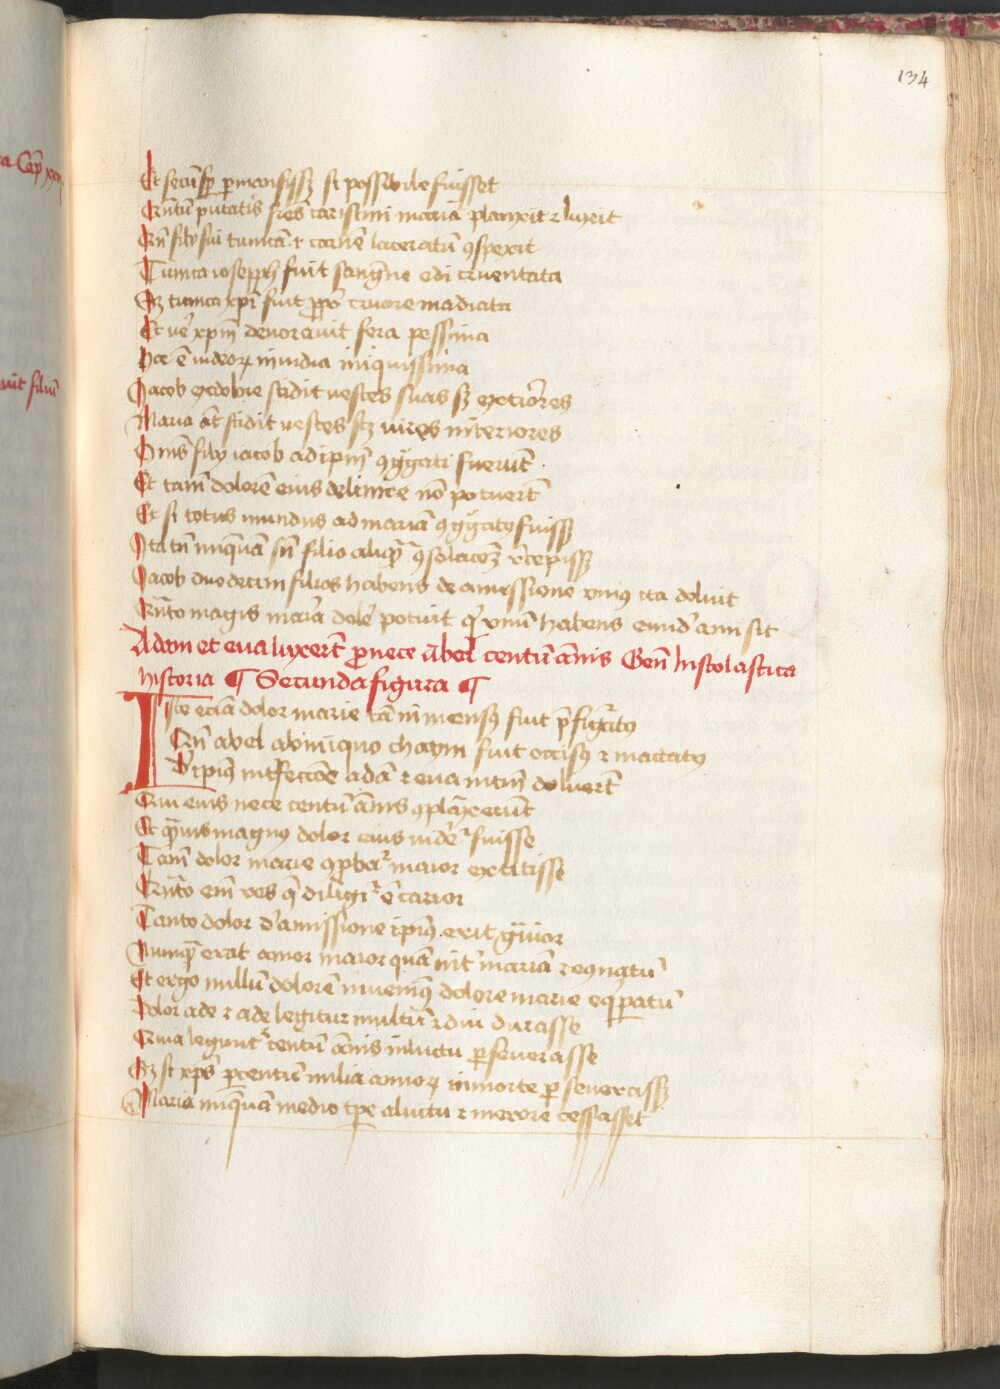 134
Et secū sp̄ pmansissꝫ si possibile fuisset
Qn̄tū putatis frēs carissimi maria planxit ⁊ luxit
Qn̄ filij sui tunicā ⁊ carnē laceratū ꝯspexit
Tunica ioseph fuit sangwine edi cruentata
Sꝫ tunica xp̄i fuit ꝓp̄o cruore madidata
Et ve᷑ xp̄m deuorauit fera pessima
Hec ē iudeoꝝ inuidia iniquissima
Jacob scidit vestes suas sꝫ exteriores
Maria aūt scidit vestes scꝫ vires interiores
Oms̄ filij iacob ad ip̄m ꝯg̃gati fuerūt
Et tam̄ dolorē eius delinire nō potuerūt
Et si totus mundus ad mariā ꝯg̃gatꝰ fuissꝫ
Ita tn̄ nūquā sn̄ filio aliquā ꝯsolacōꝫ recepissꝫ
Jacob duodecim filios habens de amissione vniꝰ ita doluit
Qn̄to magis maria dole᷑ potuit q̄ vnū habens eund̄ amisit
Adam et eua luxerūt pro nece abel centū ānis Gen̄ hi scolastica
historia ¶ Secunda figura ¶
Iste eciā dolor marie tā inmensꝰ fuit p̄figuratꝰ
Qn̄ abel ab iniquo chaym fuit occisꝰ ⁊ mactatꝰ
De ipiꝰ int̄fectōe adā ⁊ eua intm̄ doluerūt
Qui eius nece centū ānis ꝯplāxerunt
Et q̄uis magnꝰ dolor eius vide᷑ fuisse
Tam̄ dolor marie ꝯproba᷑ maior extitisse
Qn̄to em̄ res q̄ diligi᷑ ē carior
Tanto dolor d̄ amissione ipiꝰ erit g̃uior
Nunq̄ erat amor maior quā int̄ mariā ⁊ eꝯ natū
Et ergo nullū dolorē inuenimꝰ dolore marie eq̄paratū
Dolor ade ⁊ ade legitur multū ⁊ diu durasse
Quia legunt᷑ centū ānis in luctu ꝑseuerasse
Sꝫ si xp̄s ꝑ centū milia annoꝝ in morte ꝑseuerassꝫ
Maria nūquā medio tp̄e a luctu ⁊ merore cessasset